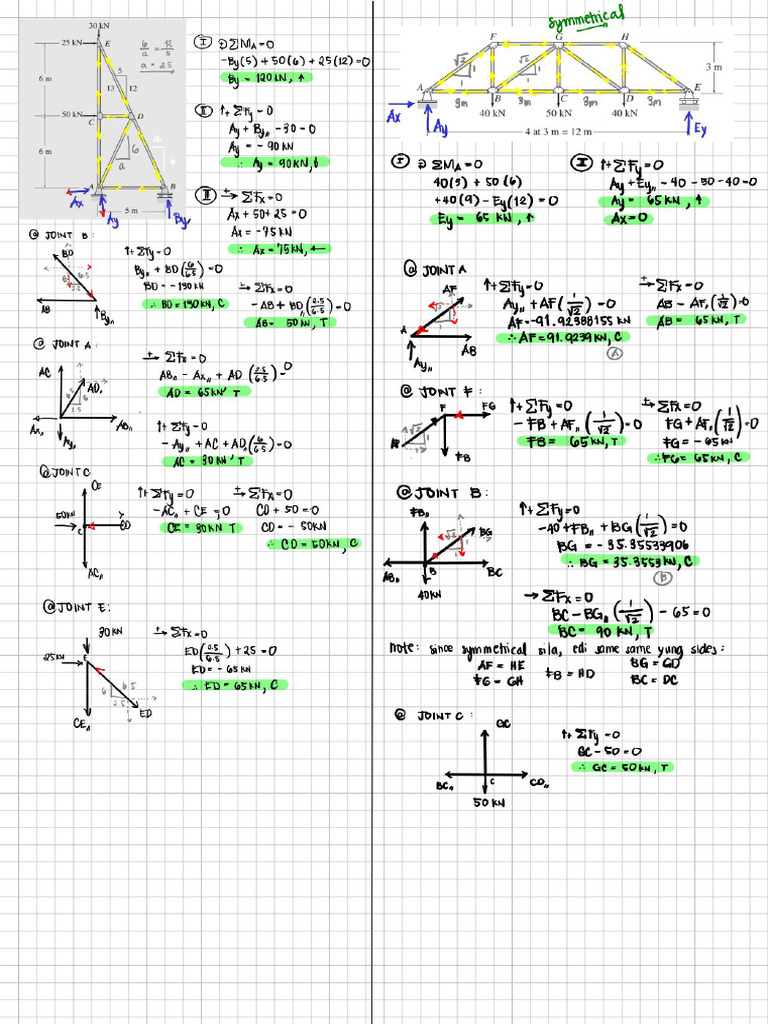 30 kN
25 kN
E
6/a = 12/5
a = 2.5
5
13
12
6 m
50 kN
C
D
a
6
6
a
6 m
A
B
Ax
Ay
5 m
By
I ↺ ΣMA = 0
-By(5) + 50(6) + 25(12) = 0
By = 120 kN, ↑
II ↑+ ΣFy = 0
Ay + By,, - 30 = 0
Ay = - 90 kN
∴ Ay = 90 kN, ↓
III +→ ΣFx = 0
Ax + 50 + 25 = 0
Ax = -75 kN
∴ Ax = 75 kN, ←
@ JOINT B:
BD
6.5
6
2.5
AB
By,,
↑+ ΣFy = 0
By,, + BD(6/6.5) = 0
BD = - 130 kN
∴ BD = 130 kN, C
+→ ΣFx = 0
-AB + BD(2.5/6.5) = 0
AB = 50 kN, T
@ JOINT A:
AC
AD,,
6.5
6
2.5
Ax,,
AB,,
Ay,,
+→ ΣFx = 0
AB,, - Ax,, + AD(2.5/6.5) = 0
AD = 65 kN, T
↑+ ΣFy = 0
-Ay,, + AC + AD,(6/6.5) = 0
AC = 30 kN, T
@ JOINT C
CE
50 kN
C
CD
AC,,
↑+ ΣFy = 0
-AC,, + CE = 0
CE = 30 kN T
+→ ΣFx = 0
CD + 50 = 0
CD = - 50 kN
∴ CD = 50 kN, C
@ JOINT E:
30 kN
25 kN
E
6
6.5
2.5
ED
CE,,
+→ ΣFx = 0
ED(2.5/6.5) + 25 = 0
ED = - 65 kN
∴ ED = 65 kN, C
symmetrical
F
G
H
√2
1
1
√2
1
1
3 m
A
B
C
D
E
3m
3m
3m
3m
Ax
Ay
40 kN
50 kN
40 kN
Ey
4 at 3 m = 12 m
I ↺ ΣMA = 0
40(3) + 50(6)
+40(9) - Ey(12) = 0
Ey = 65 kN, ↑
II ↑+ ΣFy = 0
Ay + Ey,, - 40 - 50 - 40 = 0
Ay = 65 kN, ↑
Ax = 0
@ JOINT A
AF
A
AB
Ay,,
↑+ ΣFy = 0
Ay,, + AF(1/√2) = 0
AF = -91.92388155 kN
∴ AF = 91.9239 kN, C
A
+→ ΣFx = 0
AB - AF,(1/√2) = 0
AB = 65 kN, T
@ JOINT F:
F
FG
√2
1
1
AF
FB
↑+ ΣFy = 0
- FB + AF,,(1/√2) = 0
FB = 65 kN, T
+→ ΣFx = 0
FG + AF,,(1/√2) = 0
FG = - 65 kN
∴ FG = 65 kN, C
@ JOINT B:
FB,,
BG
√2
1
1
AB,,
B
BC
40 kN
↑+ ΣFy = 0
-40 + FB,, + BG(1/√2) = 0
BG = - 35.35533906
∴ BG = 35.3553 kN, C
B
→ ΣFx = 0
BC - BG,,(1/√2) - 65 = 0
BC = 90 kN, T
note: since symmetrical sila, edi same same yung sides:
AF = HE
FB = HD
BG = GD
FG = GH
BC = DC
@ JOINT C:
GC
BC,,
C
CD,,
50 kN
↑+ ΣFy = 0
GC - 50 = 0
∴ GC = 50 kN, T